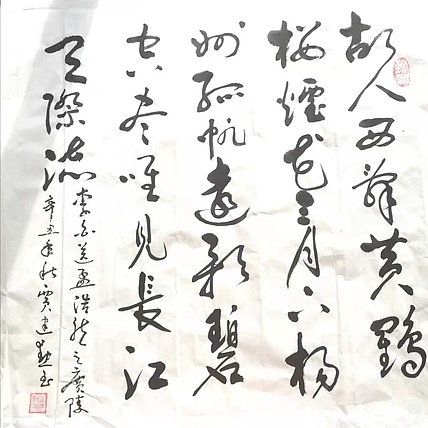 故人西辞黄鶴
楼煙花三月下杨
州孤帆遠影碧
空尽唯見長江
天際流
李白送孟浩然之廣陵
辛丑年秋賈建书